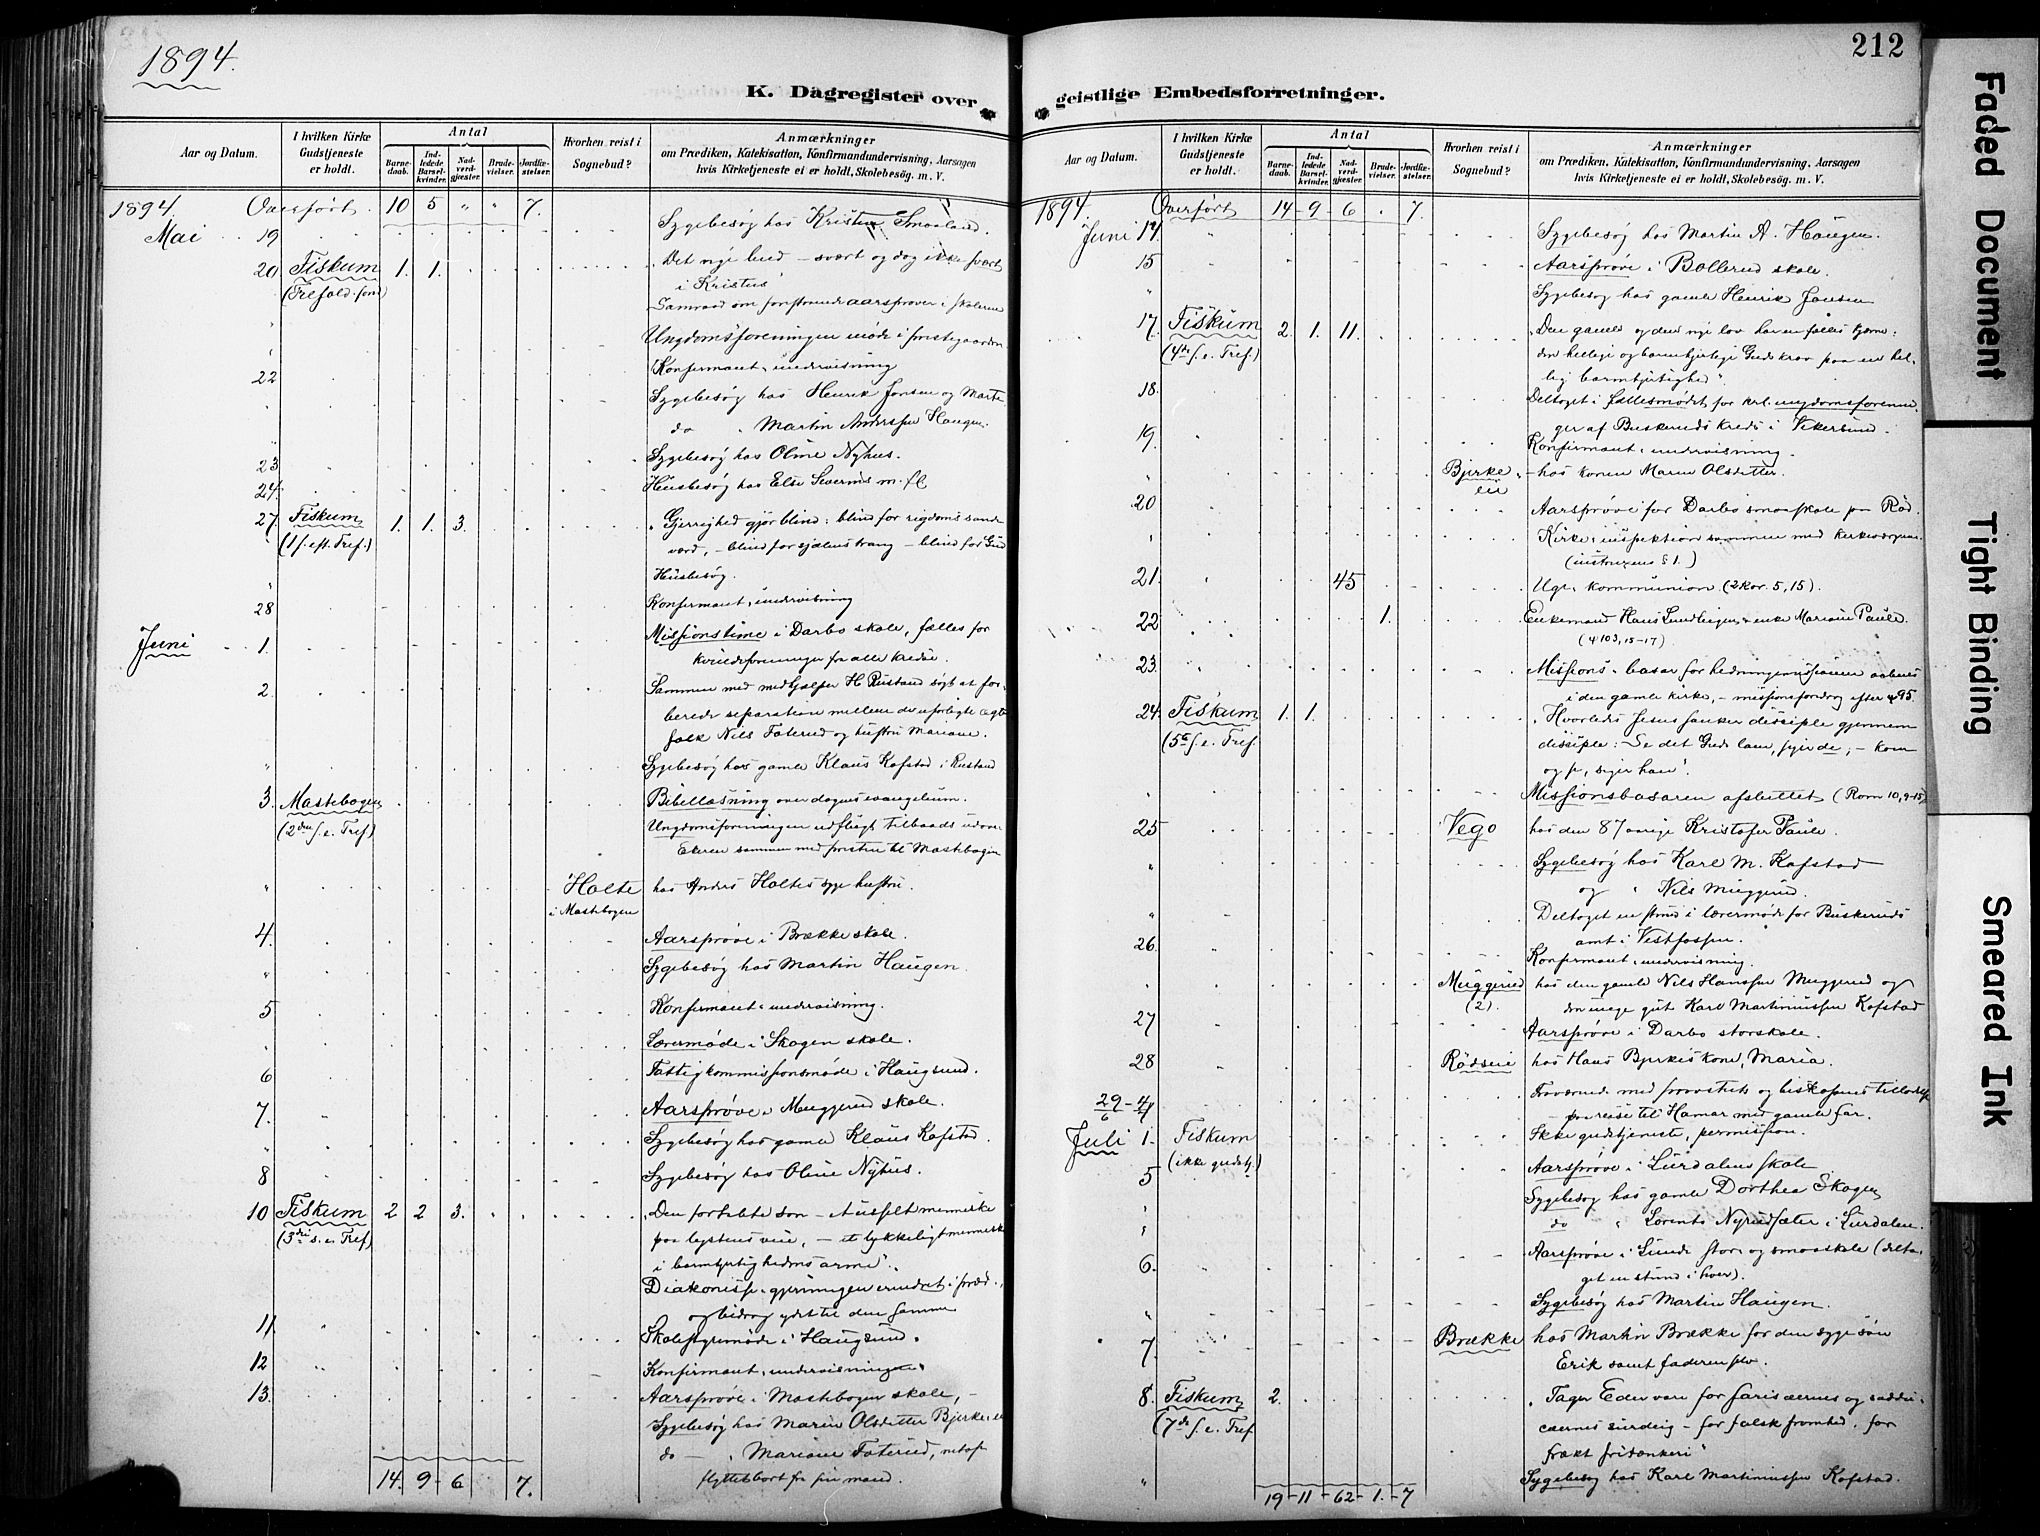 1894.
K. Dagregister over
Aar og Datum.
I hvilken Kirke Gudstjeneste er holdt.
Antal
Barnedaab.
Indledede Barselkvinder.
Nadverdgjæster.
Brudevielser.
Jordfæstelser.
Hvorhen reist i Sognebud?
Anmærkninger
om Prædiken, Katekisation, Konfirmandundervisning, Aarsagen
hvis Kirketjeneste ei er holdt, Skolebesøg. m. V.
1894 Overført. 10 5 " " 7.
Mai 19 Sygebesøg hos Kristen Smaaland.
20 Fiskum 1. 1. Det nye bud – svært og dog ikke svært
(Trefold. sønd) i Kristus
Samraad om forestaaende aarsprøver i skolerne
" Ungdomsforeningen møde i prestegaarden
22 Konfirmant-undervisning
" Sygebesøg hos Henrik Jonsen og Marte
" do " Martin Anderssen Haugen.
23 Sygebesøg hos Oline Nyhus.
24. Husbesøg hos Else Severins m. fl
27. Fiskum 1. 1. 3. "Gjerrighed gjør blind: blind for rigdoms sande
(1 s. eft. Tref.) værd, – blind for sjælens trang – blind for Gud
" Husbesøg.
28 Konfirmant-undervisning
Juni 1. Missionstime i Darbo skole, fælles for
kvindeforeninger fra alle kredse.
2. Sammen med medhjælper H. Rustand søgt at for-
berede separation mellem de uforligte ægte-
folk Nils Foterud og hustru Mariane.
" Sygebesøg hos gamle Klaus Kofstad i Rustand
3. Mastebogen Bibellæsning over dagens evangelium.
(2den s. e. Tref) Ungdomsforeningen udflugt tilbaads
Ekeren sammen med presten til Mastebogen
" Holte hos Anders Holtes syge hustru.
i Mastebogen
4. Aarsprøve i Brække skole.
" Sygebesøg hos Martin Haugen.
5 Konfirmant-undervisning.
" Lærermøde i Skogen skole.
6 Fattigkommissionsmøde i Haugsund.
7. Aarsprøve i Muggerud skole.
" Sygebesøg hos gamle Klaus Kofstad.
8 Sygebesøg hos Oline Nyhus.
10 Fiskum 2 2 3. "Den fortabte søn – et uselt menneske
(3die s. e. Tref) paa lystens veie, – et lykkeligt menneske
i barmhjertighedens arme".
Diakonisse-gjerningen erindret i præd.,
og bidrag ydet til den samme
11. Skolestyremøde i Haugsund.
12 Konfirmant-undervisningen.
13. Aarsprøve i Mastebogen skole, –
Sygebesøg hos Maren Olsdatter Bjerke
do – " Mariane Foterud, netop
flyttet bort fra sin mand.
14. 9 – 6 7.
212
geistlige Embedsforretninger.
Aar og Datum.
I hvilken Kirke Gudstjeneste er holdt.
Antal
Barnedaab.
Indledede Barselkvinder.
Nadverdgjæster.
Brudevielser.
Jordfæstelser.
Hvorhen reist i Sognebud?
Anmærkninger
om Prædiken, Katekisation, Konfirmandundervisning, Aarsagen
hvis Kirketjeneste ei er holdt, Skolebesøg. m. V.
1894. Overført 14 – 9 – 6 " 7.
Juni 14. Sygebesøg hos Martin A. Haugen.
15 Aarsprøve i Bollerud skole.
" Sygebesøg hos gamle Henrik Jonsen
17. Fiskum 2. 1. 11. "Den gamle og den nye lov har en fælles kjerne:
(4de s. e. Tref.) den hellige og barmhjertige Guds krav paa en hel-
lig barmhjertighed".
18. Deltaget i fællesmødet for krl. ungdomsforenin-
ger af Buskeruds kreds i Vikersund.
19. Konfirmant-undervisning.
" Bjerke- hos konen Maren Olsdatter.
eie
20 Aarsprøve for Darbo smaaskole paa Rød.
" Kirke-inspektion sammen med
(instruxens § 1.)
21. 45 Ugekommunion (2 Kor. 5, 15).
22 1. Enkemand Hans Lundtingen & enke Mariane Paule.
(ψ 103, 15–17)
23. Missions-basar for hedningemissionen aabnes
i den gamle kirke, – missionsforedrag efter ψ 95.
24. Fiskum 1. 1. "Hvorledes Jesus sanker disciple gjennem
(5te s. e. Tref. disciple: Se det Guds lam, siger de, – kom
og se, siger han".
" Missionsbasaren afsluttet (Rom 10, 9–15)
25 Vego hos den 87 aarige Kristofer Paule.
" Sygebesøg hos Karl M. Kofstad
og " Nils Muggerud.
" Deltaget en stund i lærermøde for Buskeruds
amt i Vestfossen.
26. Konfirmant-undervisning.
" Muggerud hos den gamle Nils Hanssen Muggerud og
(2). den unge gut Karl Martiniussen Kofstad
27 Aarsprøve i Darbo storskole.
28 Rødseie hos Hans Bjerkes kone, Maria.
29/6 – 4/7 Fraværende med provstens og biskopens tilladelse
– paa reise til Hamar med gamle far.
Juli 1. Fiskum Ikke gudstjeneste, permission.
(ikke gudstj.)
5 Aarsprøve i Lurdalens skole
" Sygebesøg hos gamle Dorthea Skogen
" do " Lorents Nyrudsæter i Lurdalen.
6. Aarsprøve i Lunde stor- og smaaskole (delta-
get en stund i hver).
" Sygebesøg hos Martin Haugen.
7. Brække hos Martin Brække for den syge søn
Erik samt faderen selv.
8. Fiskum 2. "Tager Eder vare for farisæernes og saddu-
(7de s. e. Tref. cæernes surdeig – for falsk fromhed, for
frækt fritænkeri"
" Sygebesøg hos Karl Martiniussen Kofstad.
19 – 11 – 62 – 1. – 7
Faded Document
Tight Binding
Smeared Ink